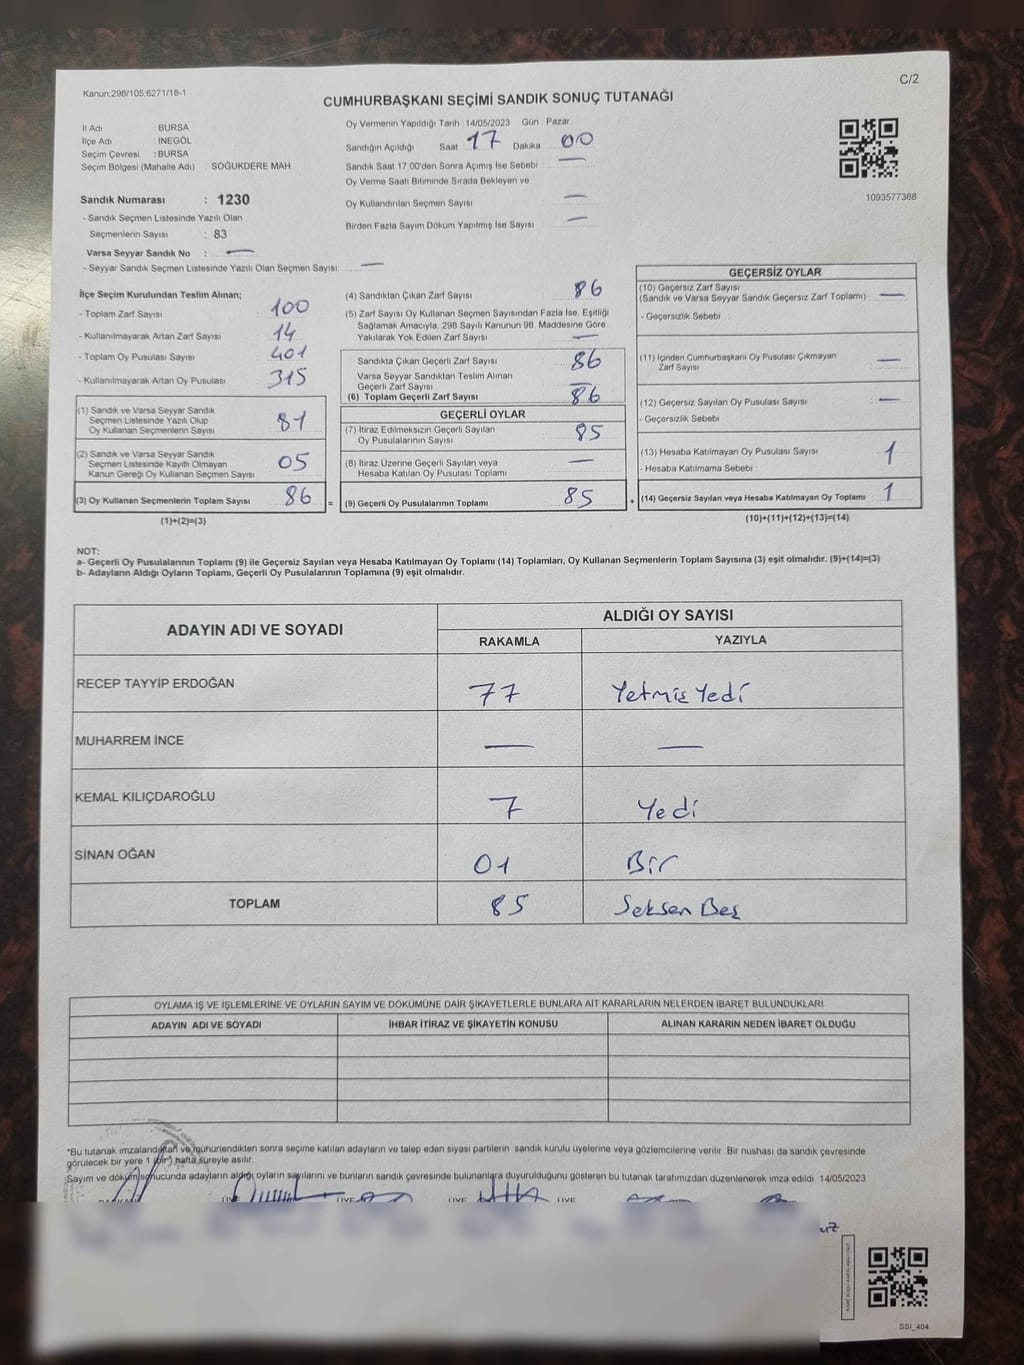 Kanun:298/105;6271/18-1
C/2
CUMHURBAŞKANI SEÇİMİ SANDIK SONUÇ TUTANAĞI
İl Adı : BURSA
İlçe Adı : İNEGÖL
Seçim Çevresi : BURSA
Seçim Bölgesi (Mahalle Adı) SOĞUKDERE MAH
Sandık Numarası : 1230
- Sandık Seçmen Listesinde Yazılı Olan
Seçmenlerin Sayısı : 83
Varsa Seyyar Sandık No : —
- Seyyar Sandık Seçmen Listesinde Yazılı Olan Seçmen Sayısı: —
Oy Vermenin Yapıldığı Tarih :14/05/2023 Gün : Pazar
Sandığın Açıldığı Saat : 17 Dakika : 00
Sandık Saat 17:00'den Sonra Açımış İse Sebebi : —
Oy Verme Saati Bitiminde Sırada Bekleyen ve
Oy Kullandırılan Seçmen Sayısı —
Birden Fazla Sayım Döküm Yapılmış İse Sayısı : —
1093577388
İlçe Seçim Kurulundan Teslim Alınan;
- Toplam Zarf Sayısı : 100
- Kullanılmayarak Artan Zarf Sayısı : 14
- Toplam Oy Pusulası Sayısı : 401
- Kullanılmayarak Artan Oy Pusulası : 315
(1) Sandık ve Varsa Seyyar Sandık
Seçmen Listesinde Yazılı Olup
Oy Kullanan Seçmenlerin Sayısı : 81
(2) Sandık ve Varsa Seyyar Sandık
Seçmen Listesinde Kayıtlı Olmayan
Kanun Gereği Oy Kullanan Seçmen Sayısı : 05
(3) Oy Kullanan Seçmenlerin Toplam Sayısı : 86 =
(1)+(2)=(3)
(4) Sandıktan Çıkan Zarf Sayısı : 86
(5) Zarf Sayısı Oy Kullanan Seçmen Sayısından Fazla İse, Eşitliği
Sağlamak Amacıyla, 298 Sayılı Kanunun 98. Maddesine Göre
Yakılarak Yok Edilen Zarf Sayısı : —
Sandıkta Çıkan Geçerli Zarf Sayısı : 86
Varsa Seyyar Sandıktan Teslim Alınan
Geçerli Zarf Sayısı : —
(6) Toplam Geçerli Zarf Sayısı : 86
GEÇERLİ OYLAR
(7) İtiraz Edilmeksizin Geçerli Sayılan
Oy Pusulalarının Sayısı : 85
(8) İtiraz Üzerine Geçerli Sayılan veya
Hesaba Katılan Oy Pusulası Toplamı : —
(9) Geçerli Oy Pusulalarının Toplamı : 85 +
GEÇERSİZ OYLAR
(10) Geçersiz Zarf Sayısı
(Sandık ve Varsa Seyyar Sandık Geçersiz Zarf Toplamı) : —
- Geçersizlik Sebebi :
(11) İçinden Cumhurbaşkanı Oy Pusulası Çıkmayan
Zarf Sayısı : —
(12) Geçersiz Sayılan Oy Pusulası Sayısı : —
- Geçersizlik Sebebi :
(13) Hesaba Katılmayan Oy Pusulası Sayısı : 1
- Hesaba Katılmama Sebebi :
(14) Geçersiz Sayılan veya Hesaba Katılmayan Oy Toplamı : 1
(10)+(11)+(12)+(13)=(14)
NOT:
a- Geçerli Oy Pusulalarının Toplamı (9) ile Geçersiz Sayılan veya Hesaba Katılmayan Oy Toplamı (14) Toplamları, Oy Kullanan Seçmenlerin Toplam Sayısına (3) eşit olmalıdır. (9)+(14)=(3)
b- Adayların Aldığı Oyların Toplamı, Geçerli Oy Pusulalarının Toplamına (9) eşit olmalıdır.
ADAYIN ADI VE SOYADI
ALDIĞI OY SAYISI
RAKAMLA YAZIYLA
RECEP TAYYİP ERDOĞAN 77 Yetmiş Yedi
MUHARREM İNCE — —
KEMAL KILIÇDAROĞLU 7 Yedi
SİNAN OĞAN 01 Bir
TOPLAM 85 Seksen Beş
OYLAMA İŞ VE İŞLEMLERİNE VE OYLARIN SAYIM VE DÖKÜMÜNE DAİR ŞİKAYETLERLE BUNLARA AİT KARARLARIN NELERDEN İBARET BULUNDUKLARI
ADAYIN ADI VE SOYADI İHBAR İTİRAZ VE ŞİKAYETİN KONUSU ALINAN KARARIN NEDEN İBARET OLDUĞU
*Bu tutanak imzalandıktan ve mühürlendikten sonra seçime katılan adayların ve talep eden siyasi partilerin sandık kurulu üyelerine veya gözlemcilerine verilir. Bir nushası da sandık çevresinde
görülecek bir yere 1 (bir) hafta süreyle asılır.
Sayım ve döküm sonucunda adayların aldığı oyların sayılarını ve bunların sandık çevresinde bulunanlara duyurulduğunu gösteren bu tutanak tarafımızdan düzenlenerek imza edildi. 14/05/2023
SSI_404